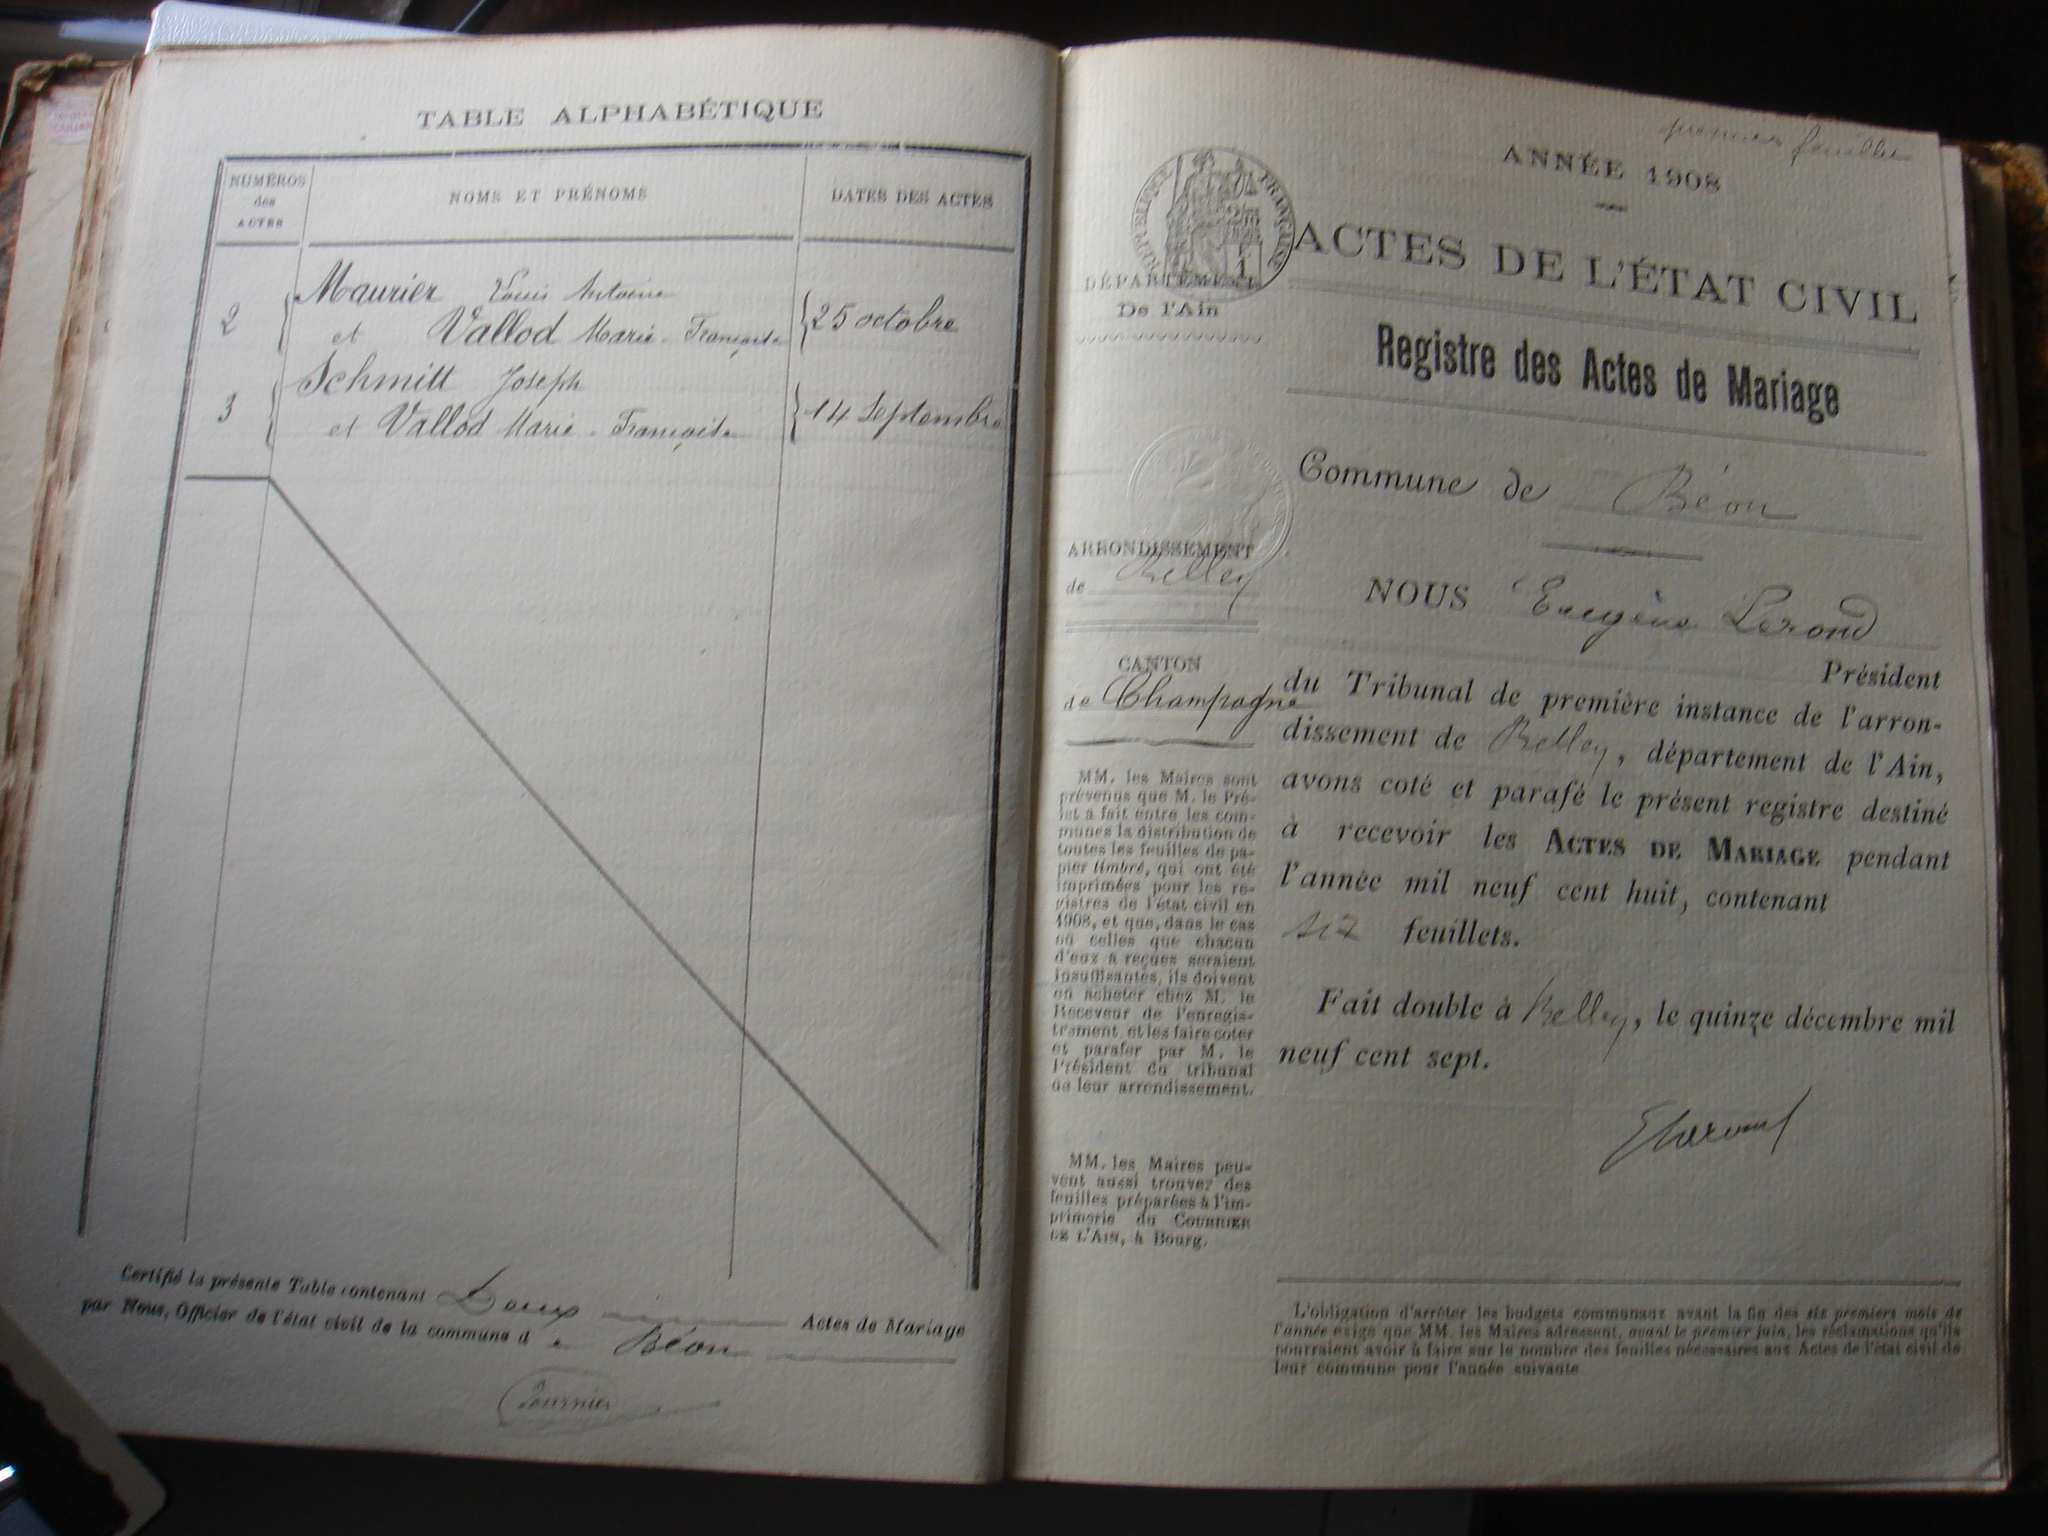 TABLE ALPHABÉTIQUE
NUMÉROS
des
ACTES
NOMS ET PRÉNOMS
DATES DES ACTES
2
Maurier Louis Antoine
et Vallod Marie-Françoise
25 octobre
3
Schmitt Joseph
et Vallod Marie-Françoise
14 Septembre
Certifié la présente Table contenant Deux Actes de Mariage
par Nous, Officier de l'état civil de la commune de Béon
Fournier
premier feuillet
ANNÉE 1908
RÉPUBLIQUE FRANÇAISE
ACTES DE L'ÉTAT CIVIL
DÉPARTEMENT
De l'Ain
Registre des Actes de Mariage
Commune de Béon
ARRONDISSEMENT
de Belley
NOUS Eugène Lerond
Président
CANTON
de Champagne
du Tribunal de première instance de l'arron-
dissement de Belley, département de l'Ain,
avons coté et parafé le présent registre destiné
à recevoir les ACTES DE MARIAGE pendant
l'année mil neuf cent huit, contenant
six feuillets.
Fait double à Belley, le quinze décembre mil
neuf cent sept.
MM. les Maires sont
prévenus que M. le Pré-
fet a fait entre les com-
munes la distribution de
toutes les feuilles de pa-
pier timbré, qui ont été
imprimées pour les re-
gistres de l'état civil en
1908, et que, dans le cas
où celles que chacun
d'eux a reçues seraient
insuffisantes, ils doivent
en acheter chez M. le
Receveur de l'enregis-
trement, et les faire coter
et parafer par M. le
Président du tribunal
de leur arrondissement.
MM. les Maires peu-
vent aussi trouver des
feuilles préparées à l'im-
primerie du COURRIER
DE L'AIN, à Bourg.
L'obligation d'arrêter les budgets communaux avant la fin des six premiers mois de
l'année exige que MM. les Maires adressent, avant le premier juin, les réclamations qu'ils
pourraient avoir à faire sur le nombre des feuilles nécessaires aux Actes de l'état civil de
leur commune pour l'année suivante